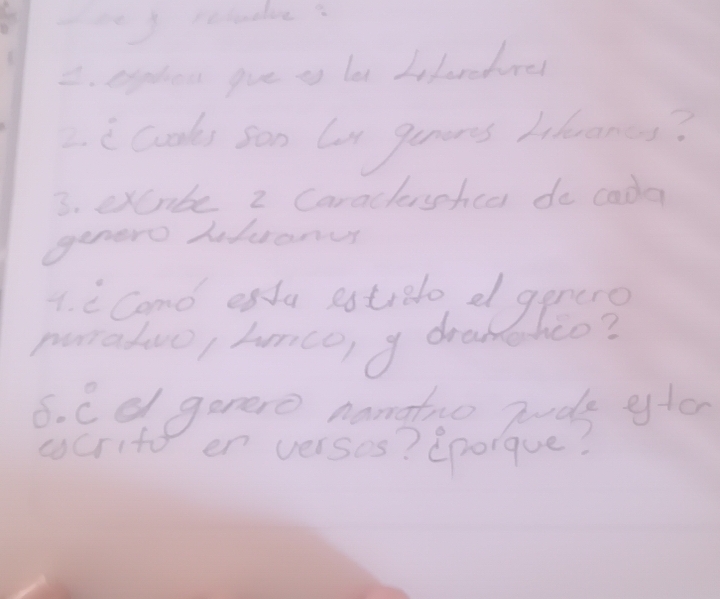 Lee y resuelve:
1. explica que es la Literatura
2. ¿Cuales son los generos Literarios?
3. excribe 2 caracteristica de cada
genero Literarios
4. ¿Comó esta estrito el genero
narrativo, Lirico, y dramatico?
5. ¿el genero narratívo puede estar
escrito en versos? ¿porque?